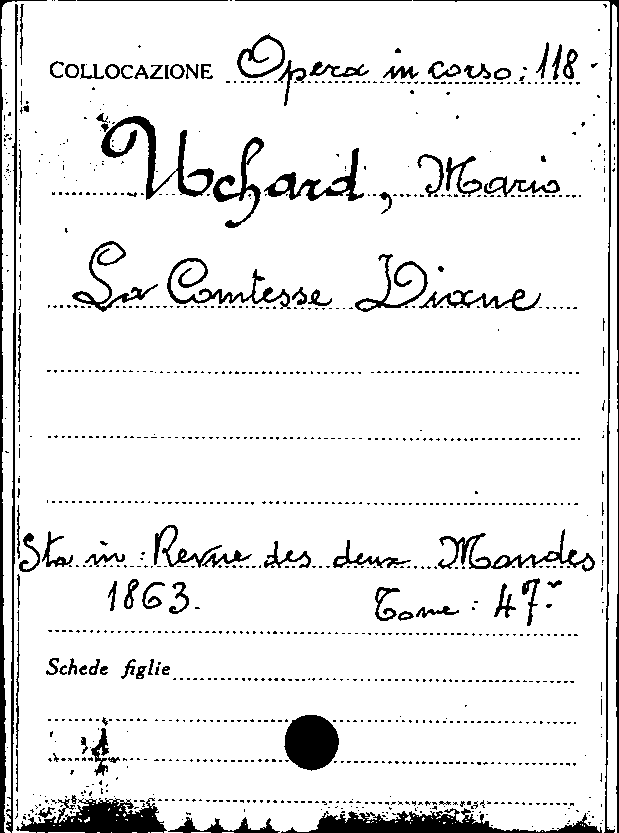 COLLOCAZIONE Opera in corso: 118
Uchard, Mario
La Comtesse Diane
Sta in: Revue des deux Mondes
1863. Tome: 47.
Schede figlie